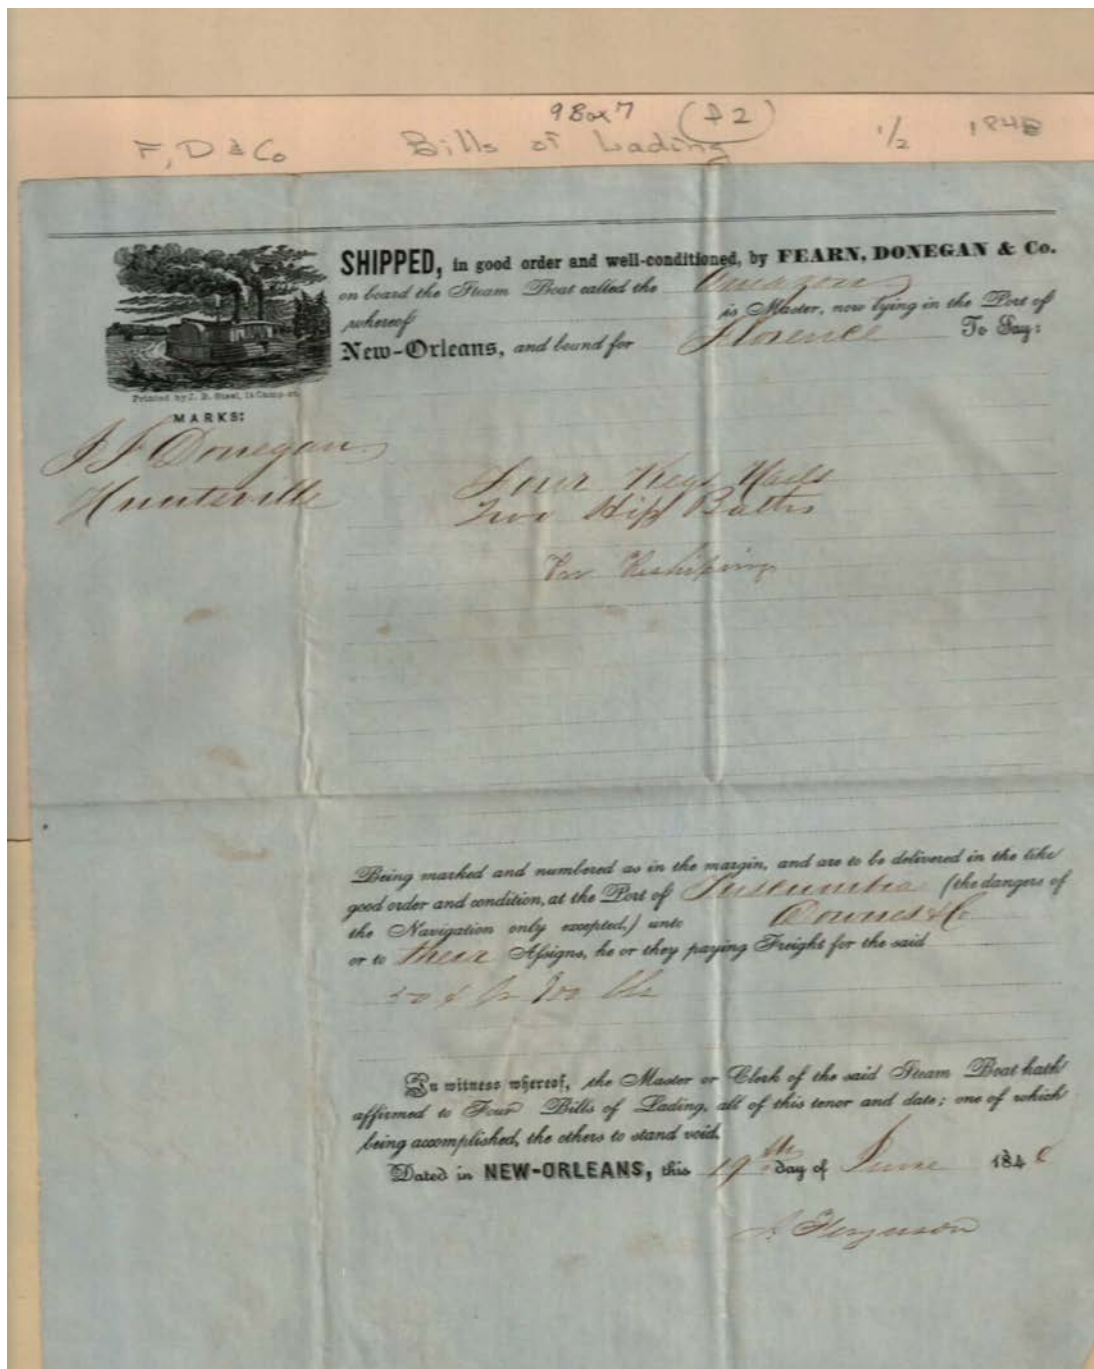 9 Box 7 (f 2)
F, D & Co Bills of Lading 1/2 184
SHIPPED, in good order and well-conditioned, by FEARN, DONEGAN & Co.
on board the Steam Boat called the Amazon
whereof is Master, now lying in the Port of
New-Orleans, and bound for Florence To Say:
Printed by J. B. Steel, Camp-st.
MARKS:
J F Donegan
Huntsville
Four Kegs Nails
Two Hip Baths
For Reshiping
Being marked and numbered as in the margin, and are to be delivered in the like
good order and condition, at the Port of Tuscumbia (the dangers of
the Navigation only excepted,) unto Downes & Co
or to their Assigns, he or they paying Freight for the said
50 ¢ 100 lbs
In witness whereof, the Master or Clerk of the said Steam Boat hath
affirmed to Four Bills of Lading, all of this tenor and date; one of which
being accomplished, the others to stand void.
Dated in NEW-ORLEANS, this 19th day of June 184
Ferguson